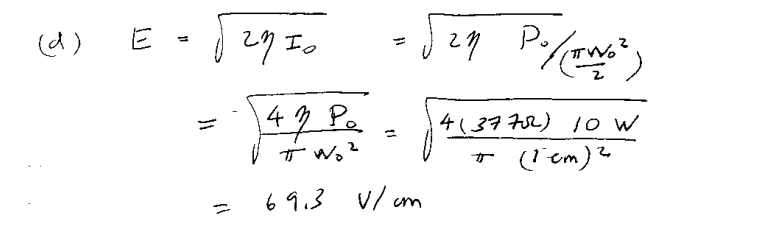 (d) E = √(2η I₀) = √(2η P₀/(πW₀²/2))
= √(4η P₀ / π W₀²) = √(4(377Ω) 10 W / π (1 cm)²)
= 69.3 V/cm